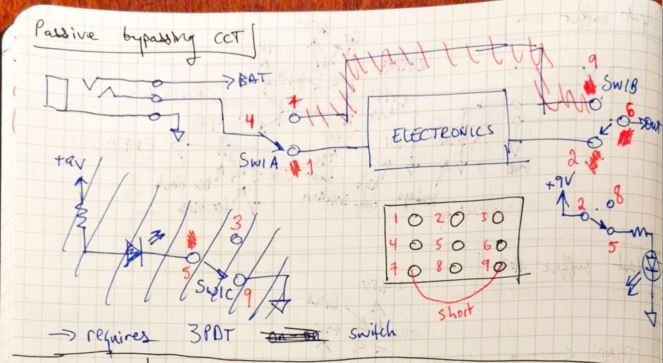 Passive bypassing CCT
→BAT
4
7
SW1A
1
ELECTRONICS
9
SW1B
6
→Out
2
+9V
5
3
SW1C
9
+9V
2
8
5
1 2 3
4 5 6
7 8 9
short
→ requires 3PDT on-on switch